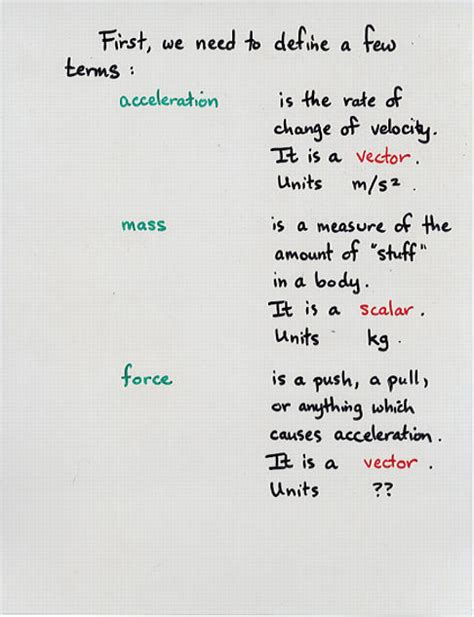 First, we need to define a few
terms :
acceleration is the rate of
change of velocity.
It is a vector.
Units m/s²
mass is a measure of the
amount of "stuff"
in a body.
It is a scalar.
Units kg.
force is a push, a pull,
or anything which
causes acceleration.
It is a vector.
Units ??